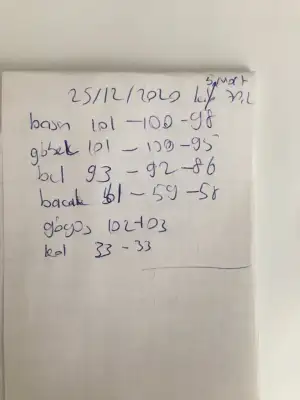 5 mart
25/12/2020 kilo 70,2
basen 101 - 100 - 98
göbek 101 - 100 - 95
bel 93 - 92 - 86
bacak 61 - 59 - 58
göğüs 102 - 103
kol 33 - 33